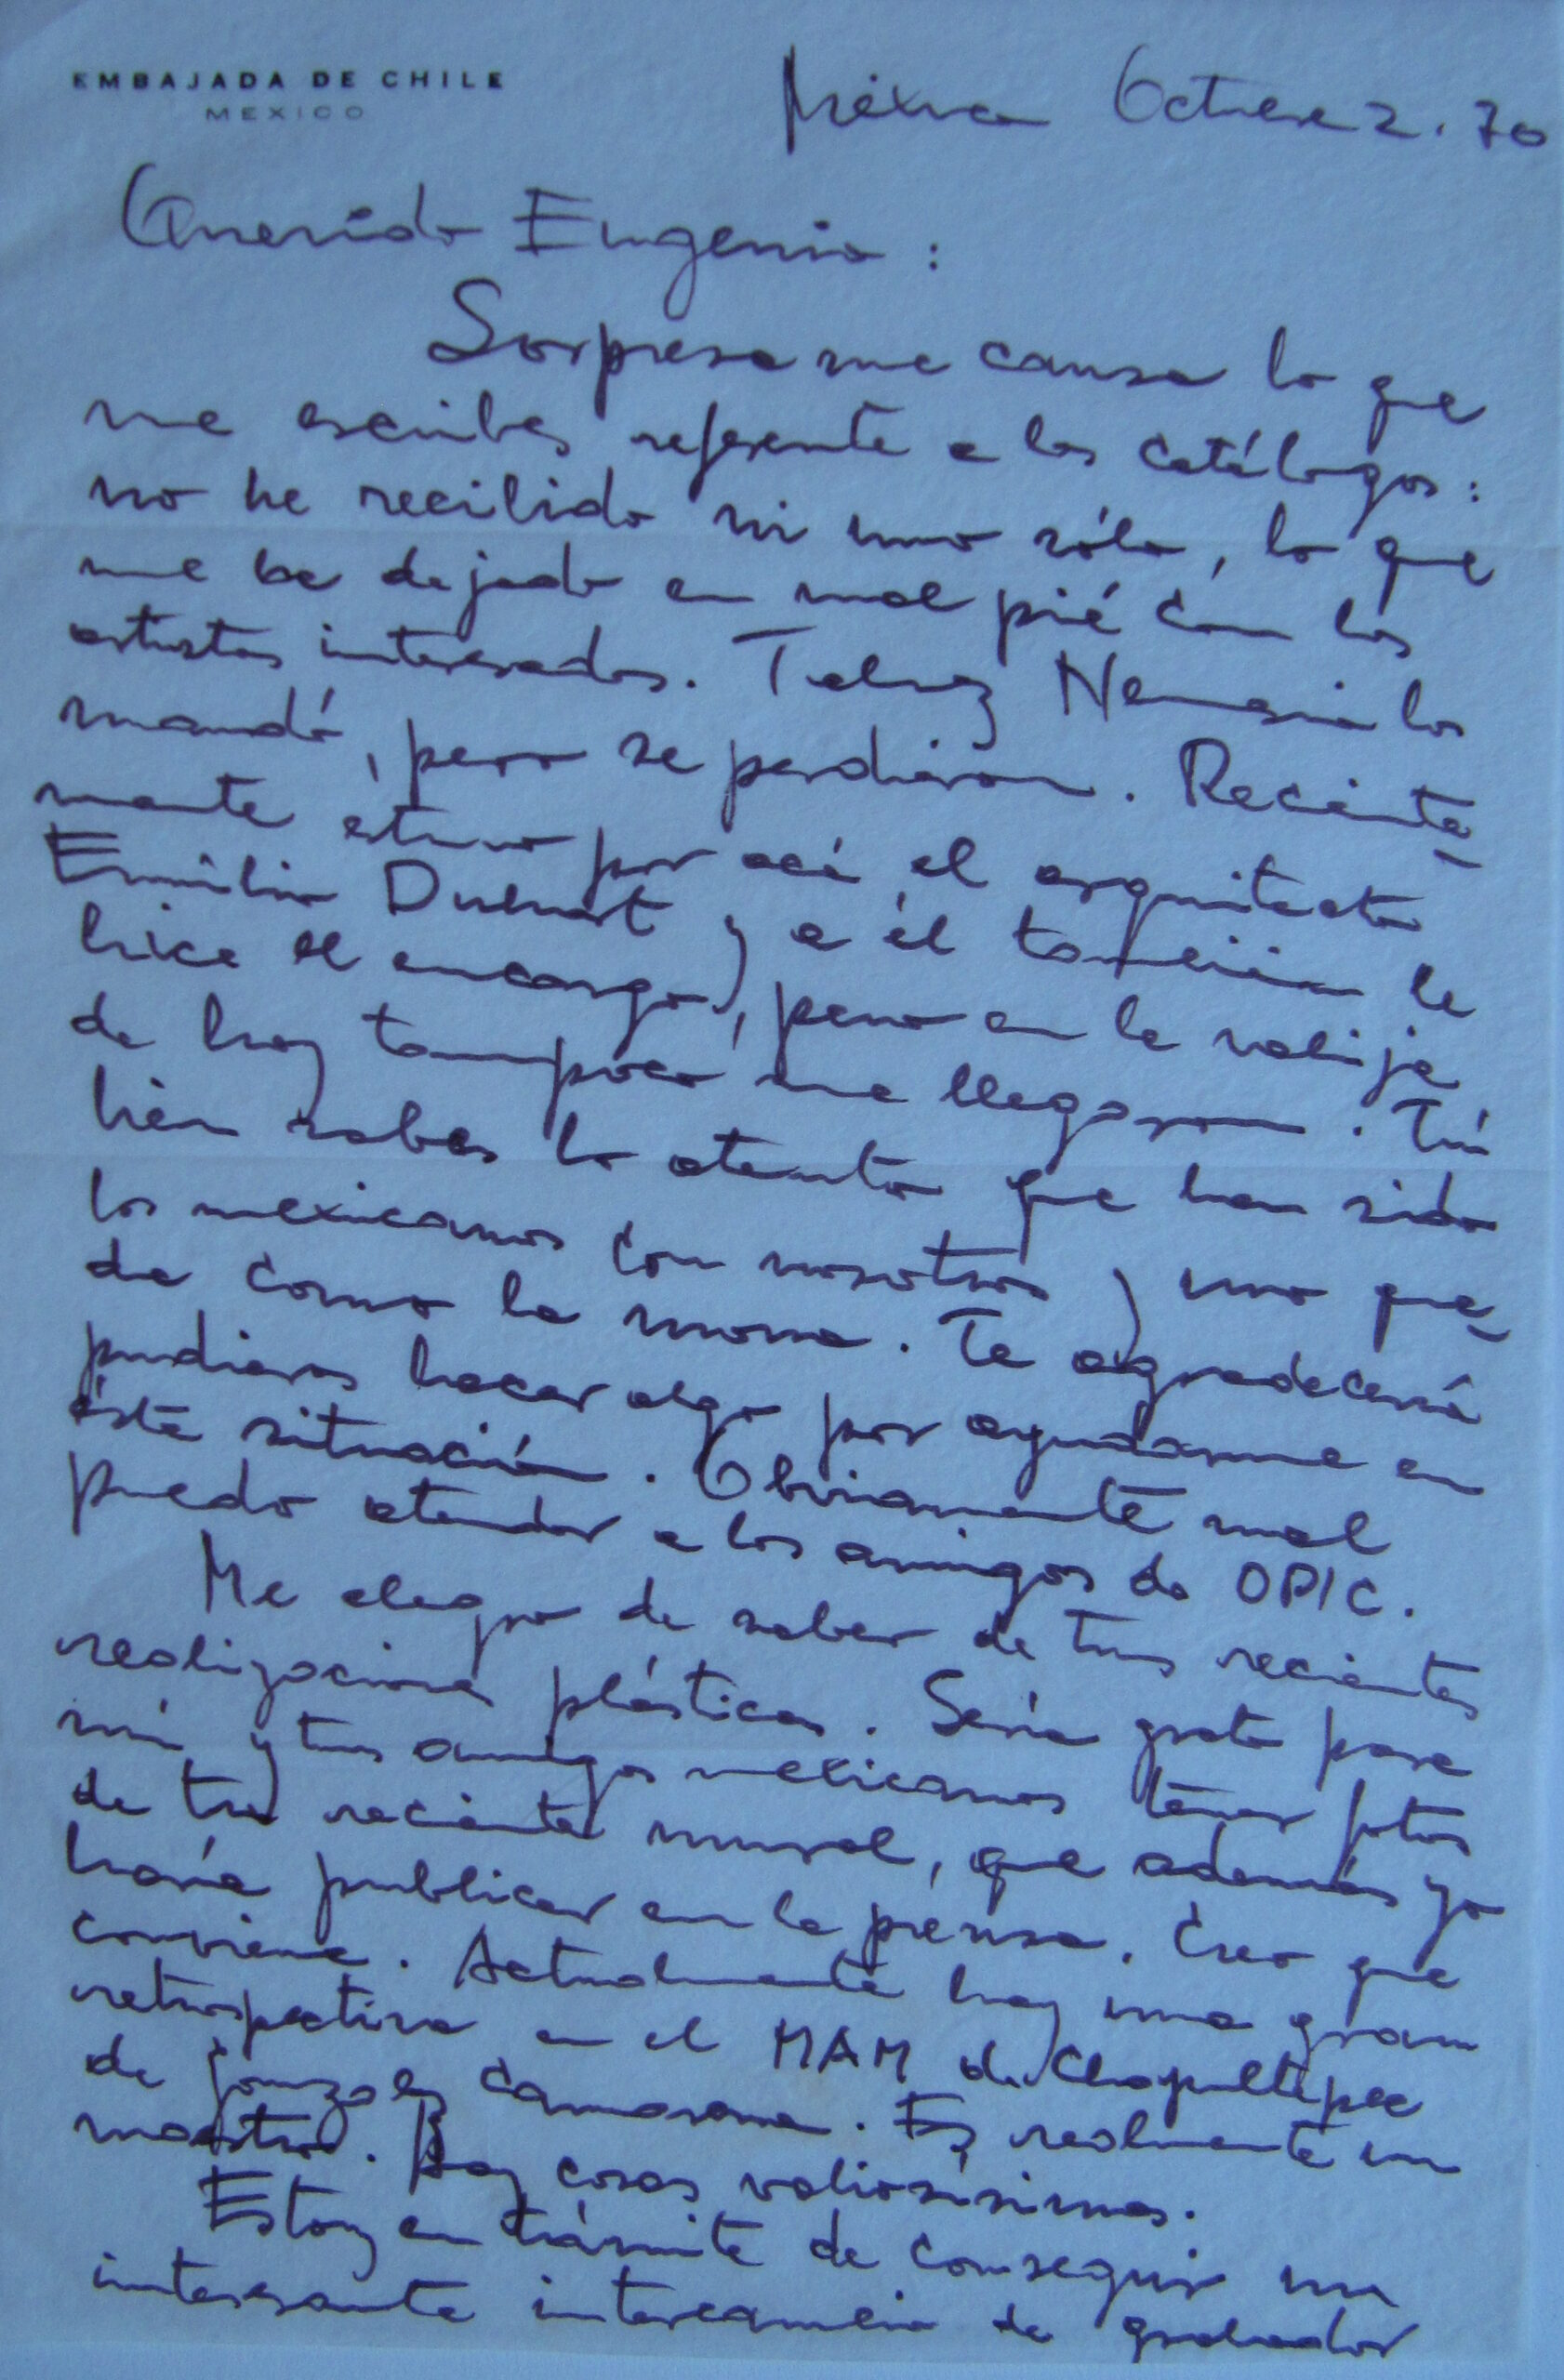 EMBAJADA DE CHILE
MEXICO
México Octubre 2. 70
Querido Eugenio :
Sorpresa me causa lo que
me escribes referente a los catálogos :
no he recibido ni uno sólo, lo que
me ha dejado en mal pié con los
artistas interesados. Talvez Nemesio los
mandó, pero se perdieron. Reciente-
mente estuvo por acá el arquitecto
Emilio Duhart y a él también le
hice el encargo, pero en la valija
de hoy tampoco me llegaron. Tú
bien sabes lo atento que han sido
los mexicanos con nosotros y uno que-
da como la mona. Te agradecería
pudieras hacer algo por ayudarme en
ésta situación. Obviamente mal
puedo atender a los amigos de OPIC.
Me alegro de saber de tus recientes
realizaciones plásticas. Sería grato para
mí y tus amigos mexicanos tener fotos
de tu reciente mural, que además yo
haría publicar en la prensa. Creo que
conviene. Actualmente hay una gran
retrospectiva en el MAM de Chapultepec
de Gonzalez Camarena. Es realmente un
maestro. Hay cosas valiosísimas.
Estoy en trámite de conseguir un
interesante intercambio de grabador